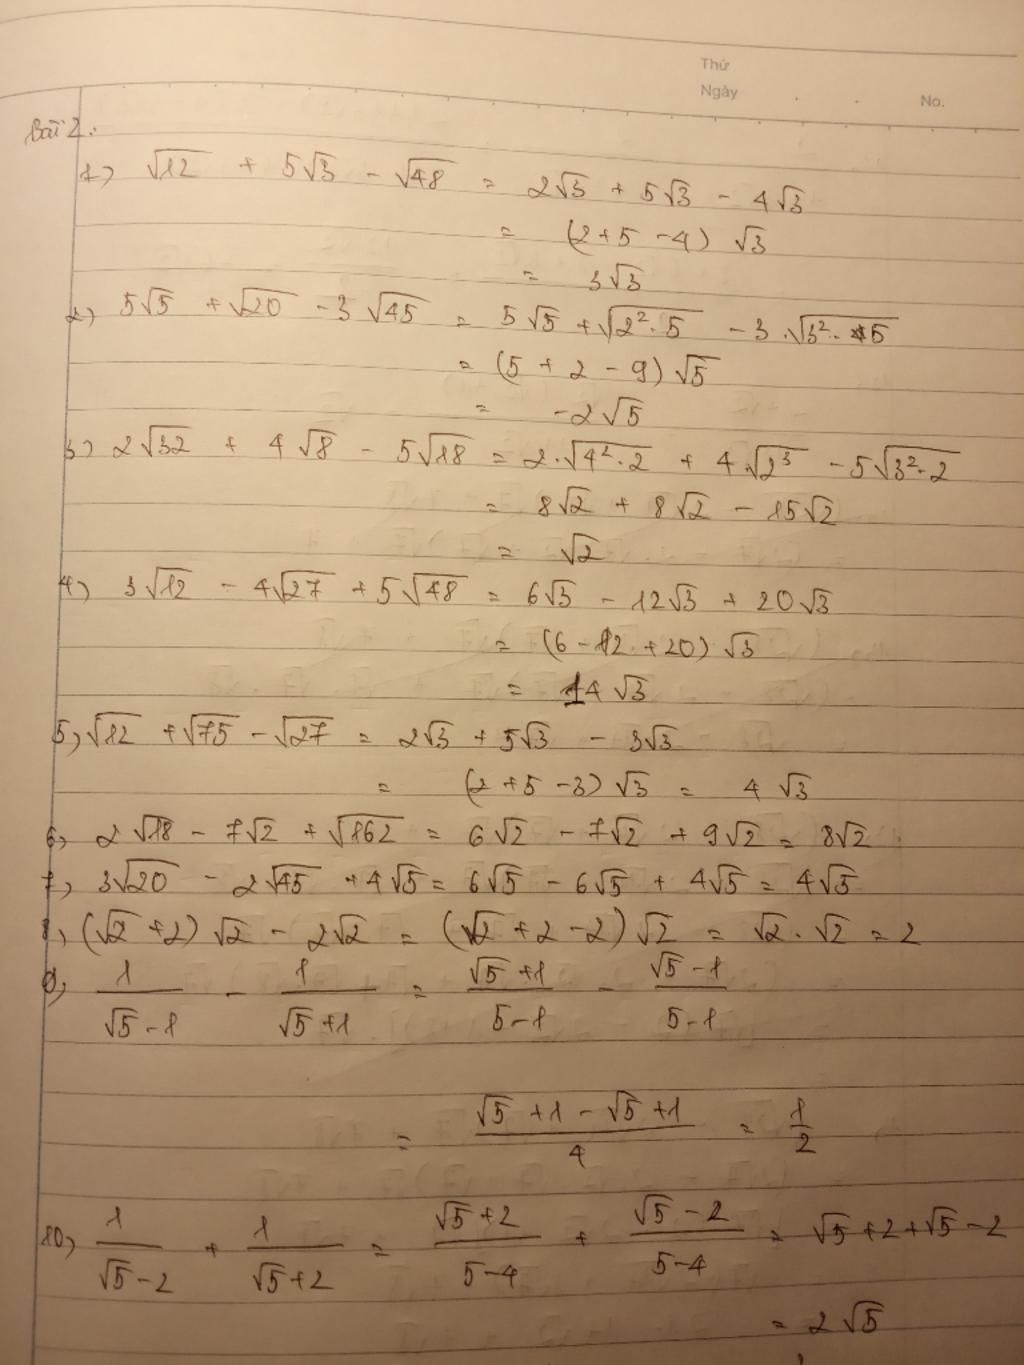 Thứ
Ngày . . No.
Bài 2.
1) √12 + 5√3 - √48 = 2√3 + 5√3 - 4√3
= (2+5-4) √3
= 3√3
2) 5√5 + √20 - 3√45 = 5√5 + √(2²·5) - 3·√(3²·5)
= (5 + 2 - 9) √5
= -2√5
3) 2√32 + 4√8 - 5√18 = 2·√(4²·2) + 4√(2³) - 5√(3²·2)
= 8√2 + 8√2 - 15√2
= √2
4) 3√12 - 4√27 + 5√48 = 6√3 - 12√3 + 20√3
= (6-12+20) √3
= 14√3
5) √12 + √75 - √27 = 2√3 + 5√3 - 3√3
= (2+5-3) √3 = 4√3
6) 2√18 - 7√2 + √162 = 6√2 - 7√2 + 9√2 = 8√2
7) 3√20 - 2√45 + 4√5 = 6√5 - 6√5 + 4√5 = 4√5
8) (√2 + 2) √2 - 2√2 = (√2 + 2 - 2) √2 = √2 · √2 = 2
9) 1/(√5-1) - 1/(√5+1) = (√5+1)/(5-1) - (√5-1)/(5-1)
= (√5+1-√5+1)/4 = 1/2
10) 1/(√5-2) + 1/(√5+2) = (√5+2)/(5-4) + (√5-2)/(5-4) = √5+2+√5-2
= 2√5